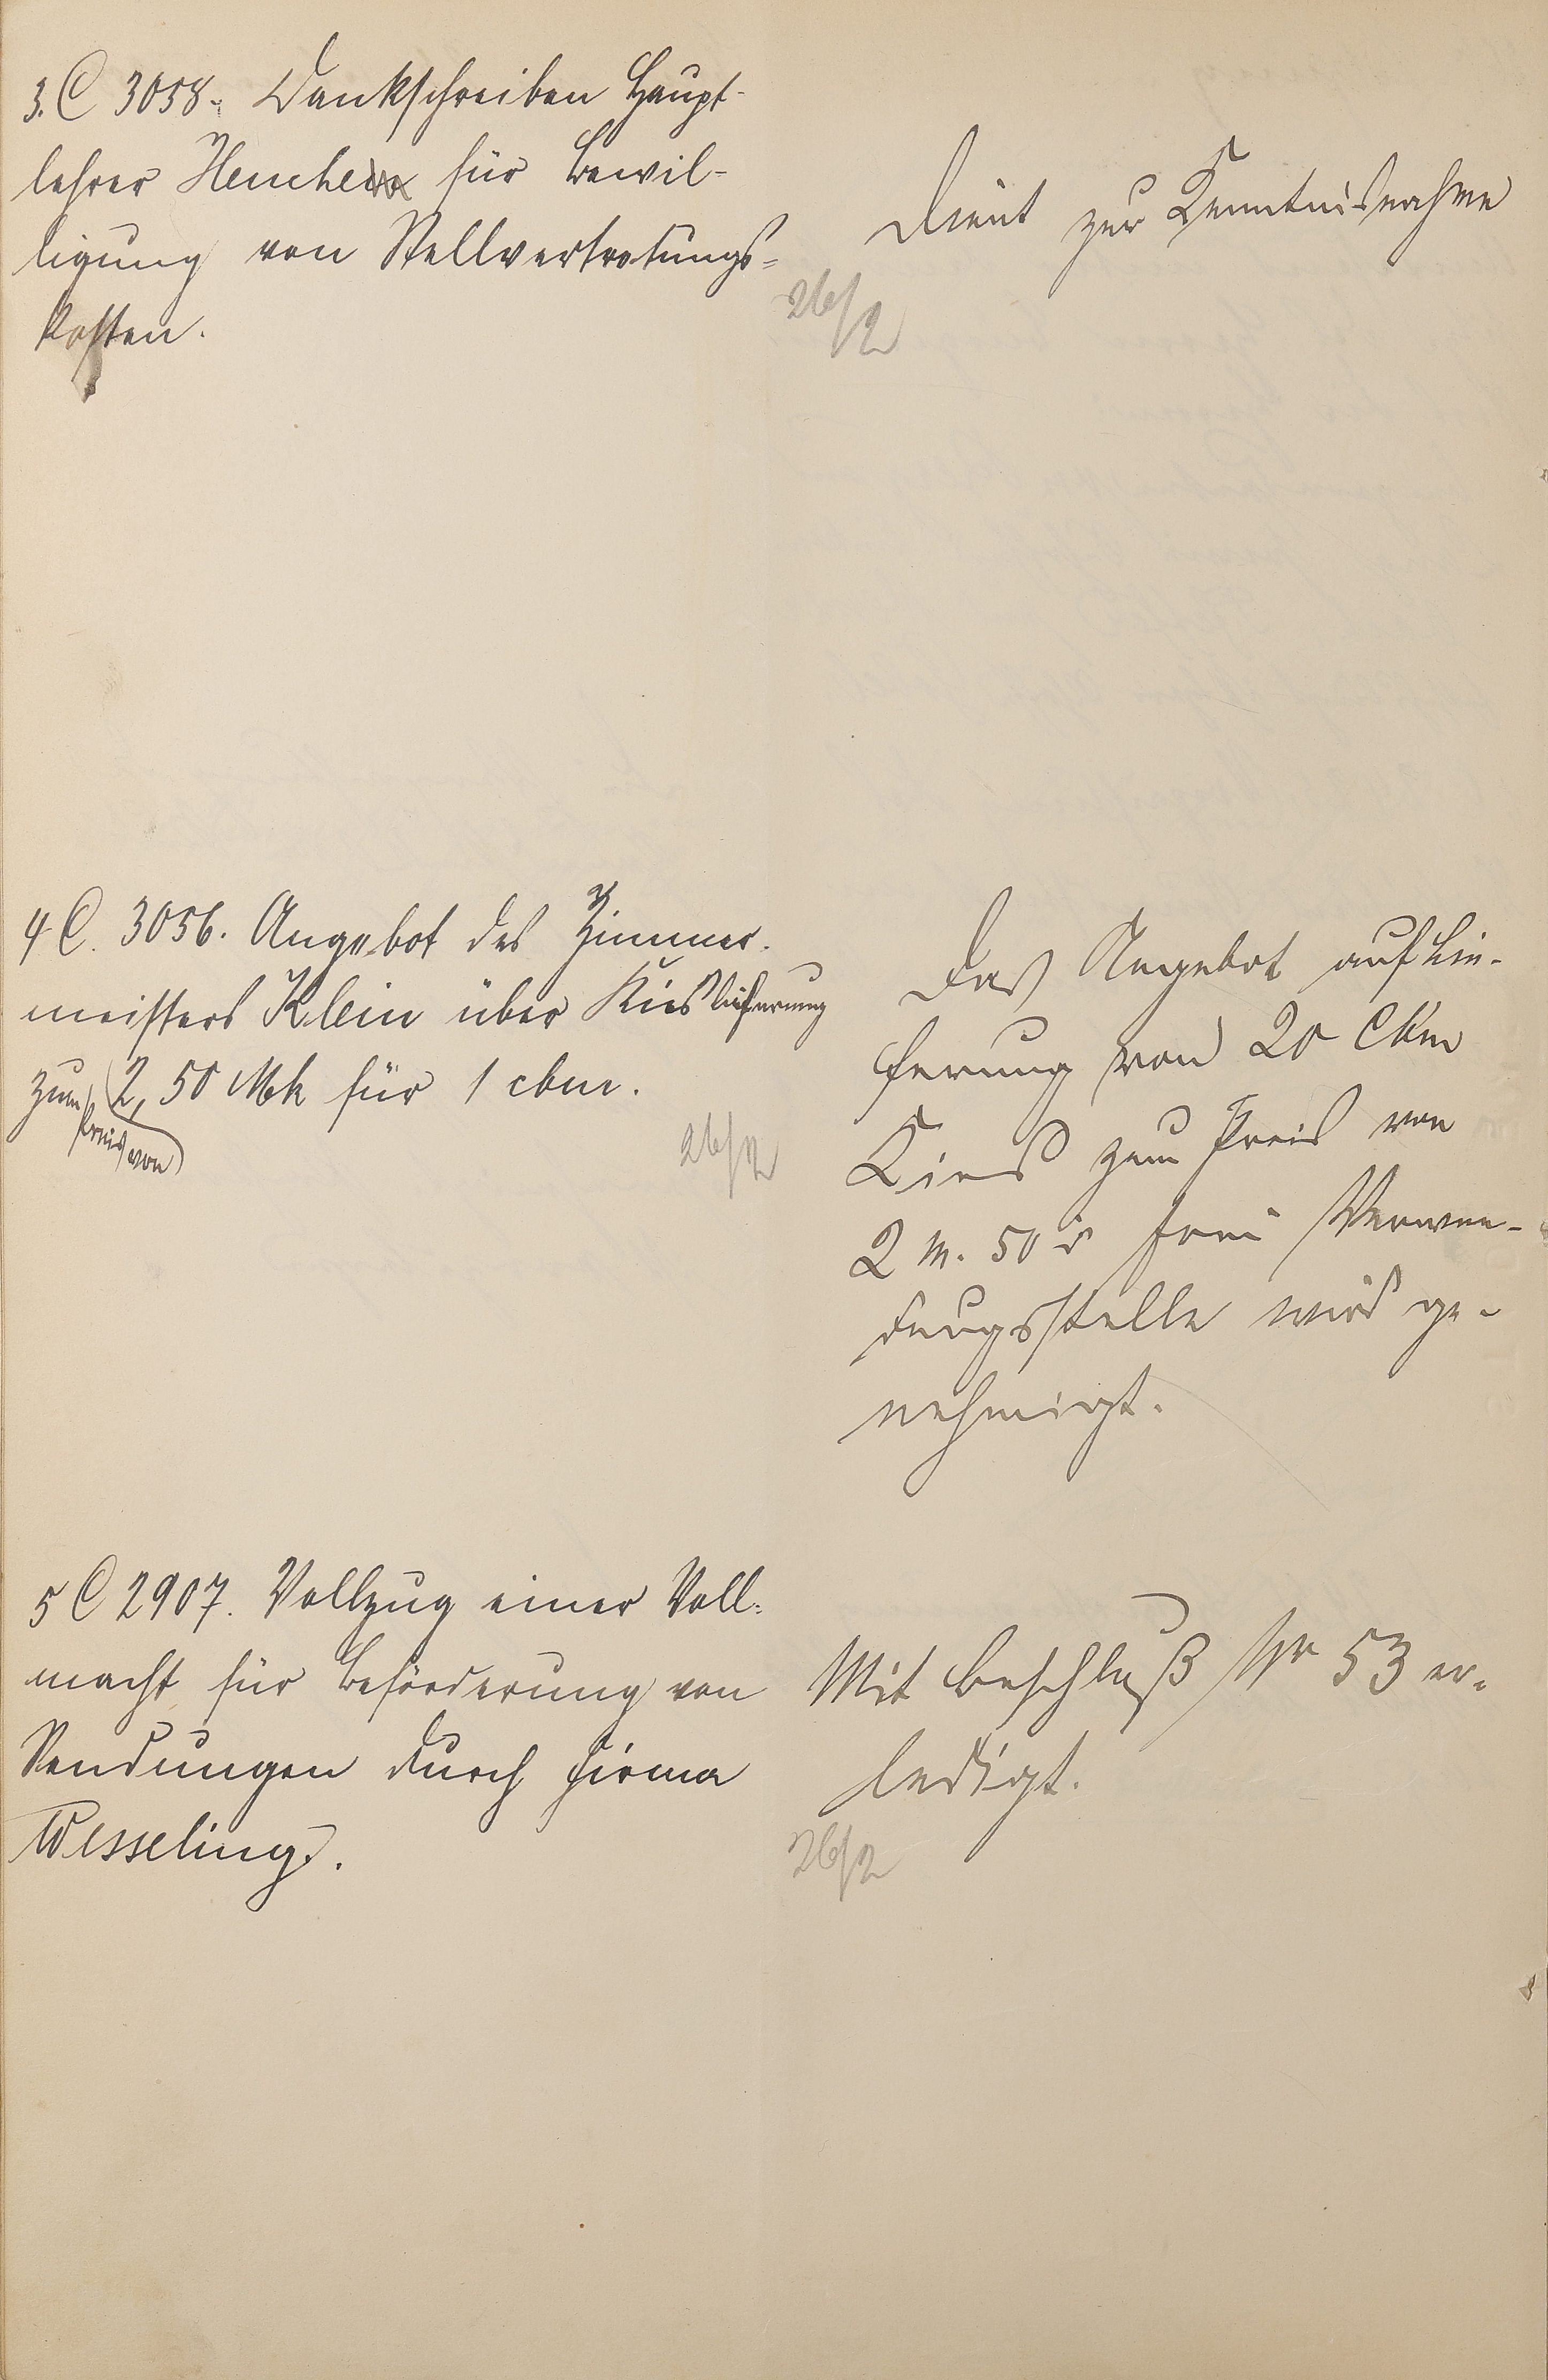 3. C 3058. Dankschreiben Haupt-
lehrer Henche für Bewil-
ligung von Stellvertretungs-
kosten.
Dient zur Kenntnisnahme
26/2
4 C. 3056. Angebot des Zimmer-
meisters Klein über Kieslieferung
zum Preis von 2,50 Mk für 1 cbm.
26/2
Das Angebot auf Lie-
ferung von 20 Cbm
Kies zum Preis von
2 M. 50 d frei Verwen-
dungsstelle wird ge-
nehmigt.
5 C 2907. Vollzug einer Voll-
macht für Beförderung von
Sendungen durch Firma
Wesseling.
Mit Beschluß Nr 53 er-
ledigt.
26/2